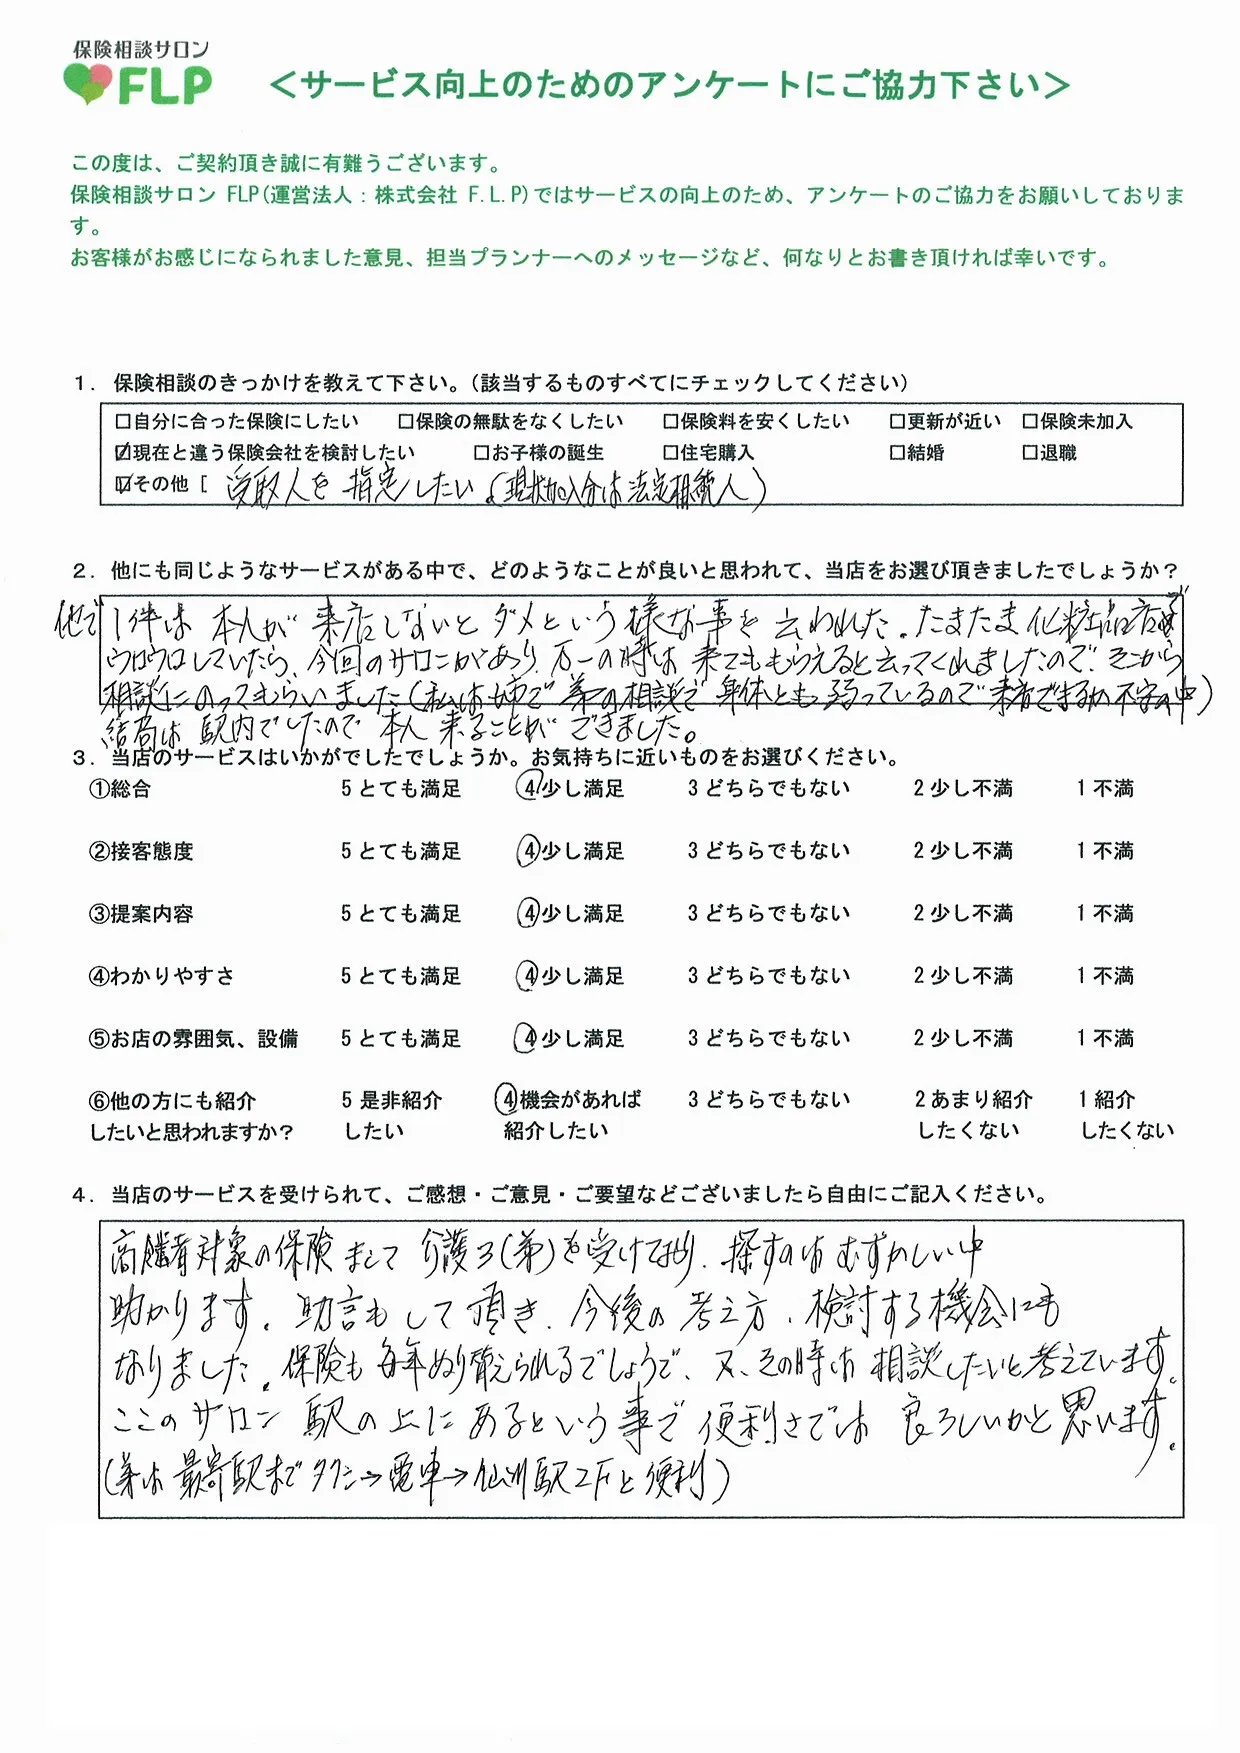 保険相談サロン
FLP
＜サービス向上のためのアンケートにご協力下さい＞
この度は、ご契約頂き誠に有難うございます。
保険相談サロン FLP(運営法人：株式会社 F.L.P)ではサービスの向上のため、アンケートのご協力をお願いしておりま
す。
お客様がお感じになられました意見、担当プランナーへのメッセージなど、何なりとお書き頂ければ幸いです。
１．保険相談のきっかけを教えて下さい。（該当するものすべてにチェックしてください）
□自分に合った保険にしたい □保険の無駄をなくしたい □保険料を安くしたい □更新が近い □保険未加入
☑現在と違う保険会社を検討したい □お子様の誕生 □住宅購入 □結婚 □退職
☑その他 [ 受取人を指定したい（現状加入分は法定相続人）
２．他にも同じようなサービスがある中で、どのようなことが良いと思われて、当店をお選び頂きましたでしょうか？
他で1件は 本人が 来店しないと ダメという 様な事を 云われた。たまたま 化粧品店で
ウロウロしていたら、今回のサロンがあり、万一の時は 来てももらえると云ってくれましたので、そこから
相談にのってもらいました（私は姉で 弟の相談で 身体とも 弱っているので 来店できるか 不安の中）
結局は 駅内でしたので 本人 来ることが できました。
３．当店のサービスはいかがでしたでしょうか。お気持ちに近いものをお選びください。
①総合 5 とても満足 ④少し満足 3 どちらでもない 2 少し不満 1 不満
②接客態度 5 とても満足 ④少し満足 3 どちらでもない 2 少し不満 1 不満
③提案内容 5 とても満足 ④少し満足 3 どちらでもない 2 少し不満 1 不満
④わかりやすさ 5 とても満足 ④少し満足 3 どちらでもない 2 少し不満 1 不満
⑤お店の雰囲気、設備 5 とても満足 ④少し満足 3 どちらでもない 2 少し不満 1 不満
⑥他の方にも紹介 5 是非紹介 ④機会があれば 3 どちらでもない 2 あまり紹介 1 紹介
したいと思われますか？ したい 紹介したい したくない したくない
４．当店のサービスを受けられて、ご感想・ご意見・ご要望などございましたら自由にご記入ください。
高齢者対象の保険 まして 介護3（弟）を受けており、探すのは むずかしい中
助かります。助言もして頂き、今後の 考え方、検討する機会にも
なりました。保険も 毎年ぬり替えられるでしょうで、又、その時は 相談したいと考えています。
ここの サロン 駅の上に あるという事で 便利さでは 良ろしいかと思います。
(弟は 最寄駅まで タクシー→電車→仙川駅2Fと便利)